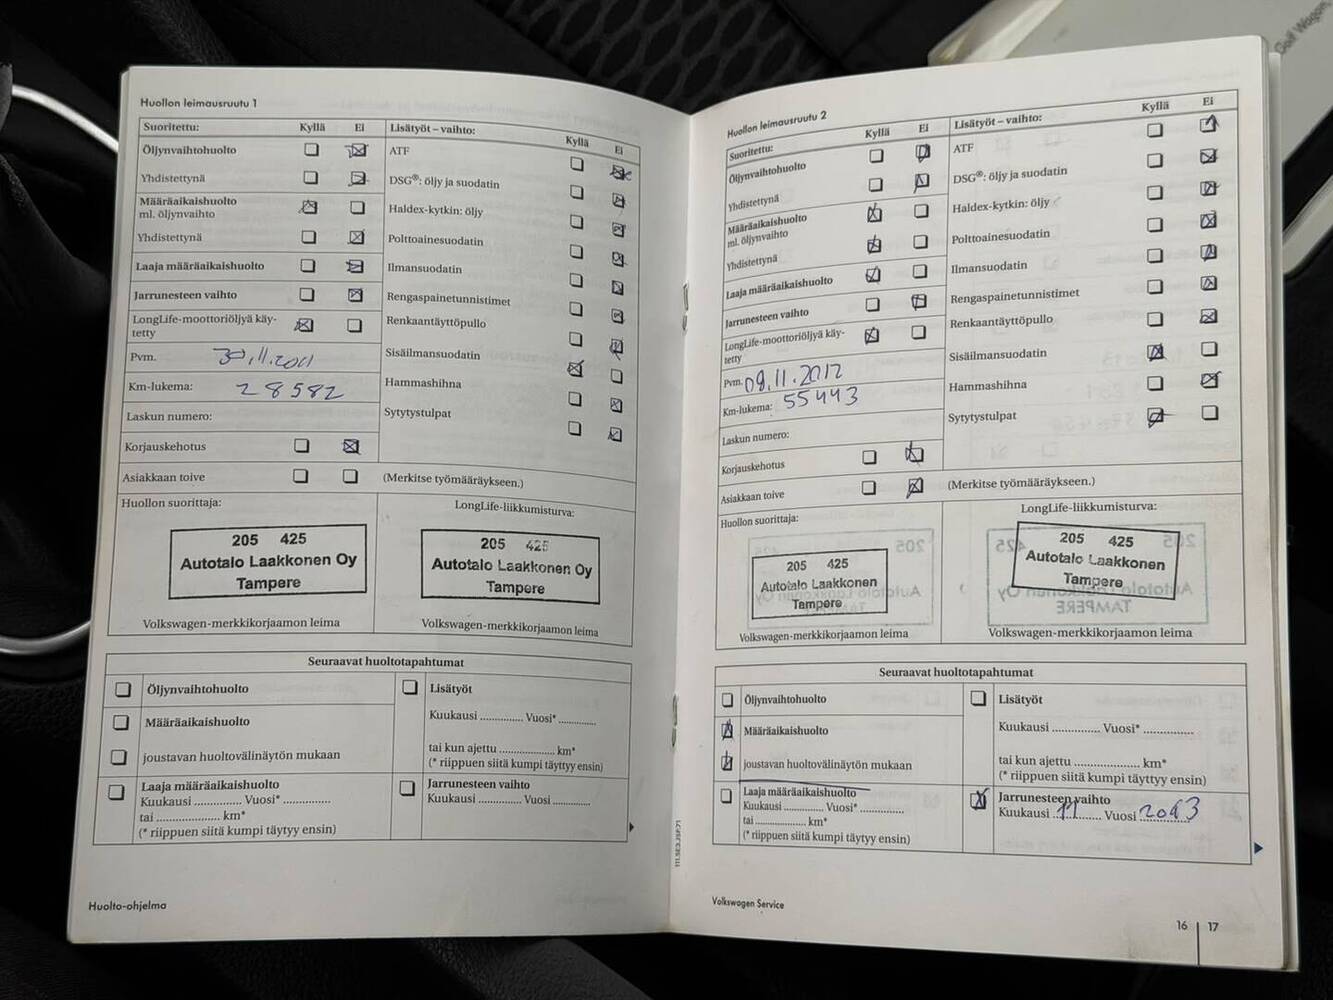 Golf Wagon,
Huollon leimausruutu 1
Suoritettu: Kyllä Ei
Öljynvaihtohuolto
Yhdistettynä
Määräaikaishuolto
ml. öljynvaihto
Yhdistettynä
Laaja määräaikaishuolto
Jarrunesteen vaihto
LongLife-moottoriöljyä käy-
tetty
Pvm. 30.11.2011
Km-lukema: 28582
Laskun numero:
Korjauskehotus
Asiakkaan toive
Lisätyöt – vaihto: Kyllä Ei
ATF
DSG®: öljy ja suodatin
Haldex-kytkin: öljy
Polttoainesuodatin
Ilmansuodatin
Rengaspainetunnistimet
Renkaantäyttöpullo
Sisäilmansuodatin
Hammashihna
Sytytystulpat
(Merkitse työmääräykseen.)
Huollon suorittaja:
205 425
Autotalo Laakkonen Oy
Tampere
Volkswagen-merkkikorjaamon leima
LongLife-liikkumisturva:
205 425
Autotalo Laakkonen Oy
Tampere
Volkswagen-merkkikorjaamon leima
Seuraavat huoltotapahtumat
Öljynvaihtohuolto
Määräaikaishuolto
joustavan huoltovälinäytön mukaan
Laaja määräaikaishuolto
Kuukausi ............... Vuosi* ...............
tai .................... km*
(* riippuen siitä kumpi täytyy ensin)
Lisätyöt
Kuukausi .............. Vuosi* ............
tai kun ajettu .................. km*
(* riippuen siitä kumpi täyttyy ensin)
Jarrunesteen vaihto
Kuukausi ............... Vuosi ............
Huolto-ohjelma
111.5E3.JSP.71
Huollon leimausruutu 2
Suoritettu: Kyllä Ei
Öljynvaihtohuolto
Yhdistettynä
Määräaikaishuolto
ml. öljynvaihto
Yhdistettynä
Laaja määräaikaishuolto
Jarrunesteen vaihto
LongLife-moottoriöljyä käy-
tetty
Pvm. 09.11.2012
Km-lukema: 55443
Laskun numero:
Korjauskehotus
Asiakkaan toive
Lisätyöt – vaihto: Kyllä Ei
ATF
DSG®: öljy ja suodatin
Haldex-kytkin: öljy
Polttoainesuodatin
Ilmansuodatin
Rengaspainetunnistimet
Renkaantäyttöpullo
Sisäilmansuodatin
Hammashihna
Sytytystulpat
(Merkitse työmääräykseen.)
Huollon suorittaja:
205 425
Autotalo Laakkonen
Tampere
Volkswagen-merkkikorjaamon leima
LongLife-liikkumisturva:
205 425
Autotalo Laakkonen
Tampere
Volkswagen-merkkikorjaamon leima
Seuraavat huoltotapahtumat
Öljynvaihtohuolto
Määräaikaishuolto
joustavan huoltovälinäytön mukaan
Laaja määräaikaishuolto
Kuukausi ............. Vuosi* ..............
tai ................ km*
(* riippuen siitä kumpi täyttyy ensin)
Lisätyöt
Kuukausi .............. Vuosi* ...............
tai kun ajettu ................... km*
(* riippuen siitä kumpi täyttyy ensin)
Jarrunesteen vaihto
Kuukausi 11 Vuosi 2013
Volkswagen Service
16 | 17